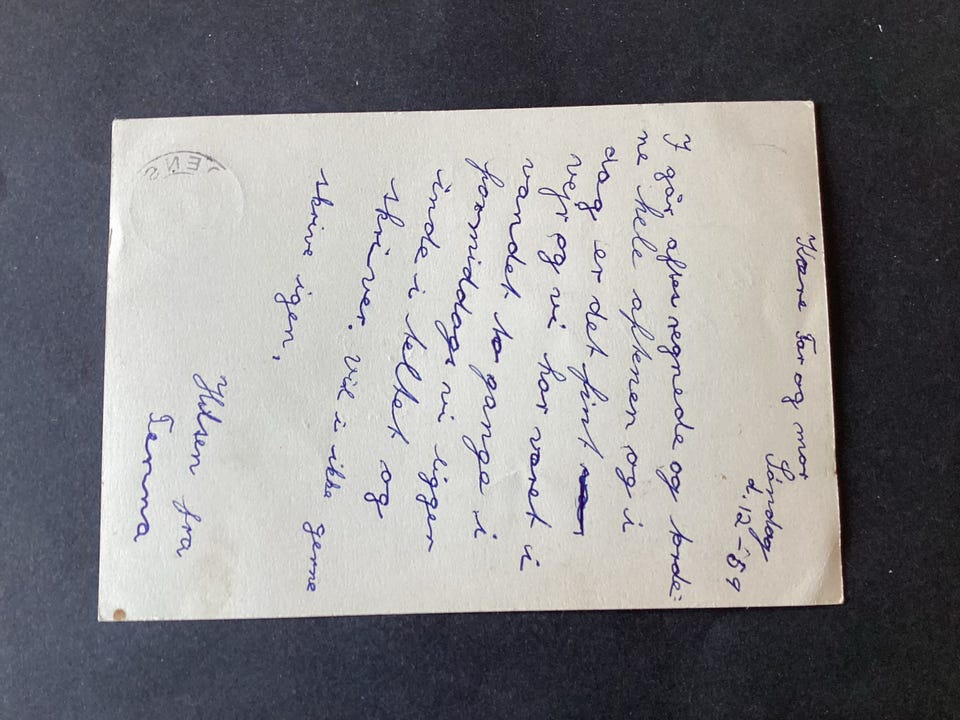 Søndag
d. 12 - 59
Kære Far og mor
I går aftes regnede og torde=
ne hele aftenen og i
dag er det fint
vejr og vi har været i
vandet to gange i
formiddags vi ligger
inde i teltet og
skriver. Vil i ikke gerne
skrive igen,
Hilsen fra
Tenna
ENS